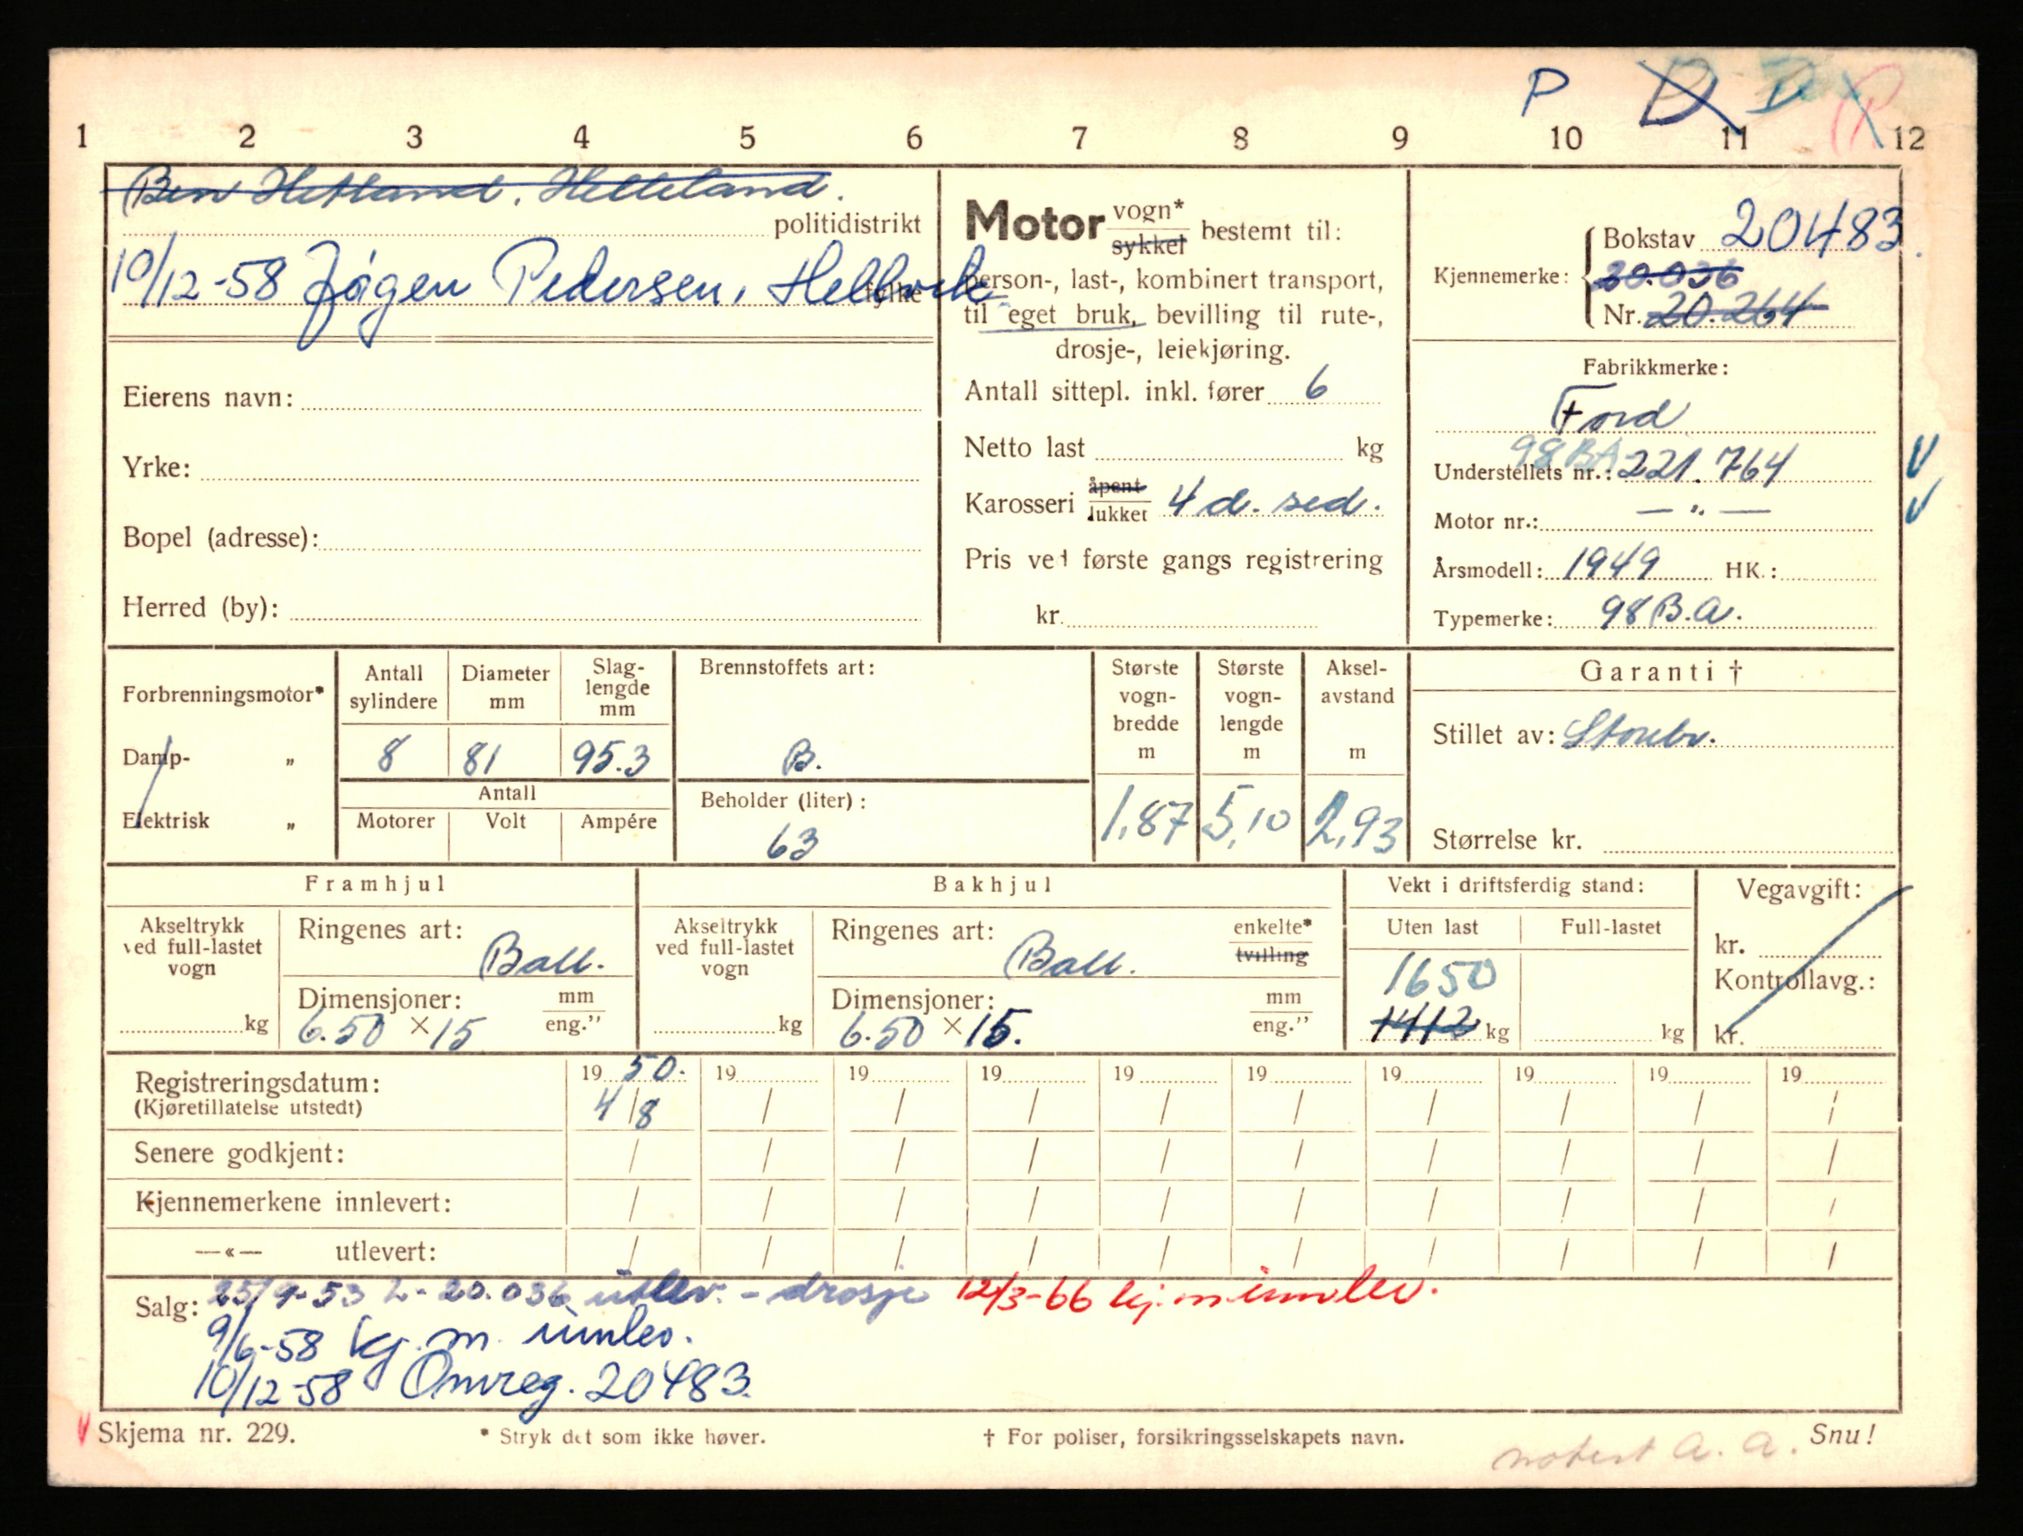 P D D P
1 2 3 4 5 6 7 8 9 10 11 12
Ben Hetland, Helleland.
politidistrikt
10/12-58 Jørgen Pedersen, Hellvik
fylke
Eierens navn:
Yrke:
Bopel (adresse):
Herred (by):
Motor vogn* sykkel bestemt til:
person-, last-, kombinert transport,
til eget bruk, bevilling til rute-,
drosje-, leiekjøring.
Antall sittepl. inkl. fører 6
Netto last kg
Karosseri åpent lukket 4 d. sed.
Pris ved første gangs registrering
kr.
Kjennemerke: Bokstav 20483.
30.036
Nr. 20.264
Fabrikkmerke:
Ford
98BA
Understellets nr.: 221.764
Motor nr.: — " —
Årsmodell: 1949 HK.:
Typemerke: 98B.A.
Forbrenningsmotor*
Damp- „
Elektrisk „
Antall sylindere 8
Diameter mm 81
Slag-lengde mm 95.3
Antall
Motorer Volt Ampére
Brennstoffets art:
B.
Beholder (liter):
63
Største vogn-bredde m 1,87
Største vogn-lengde m 5,10
Aksel-avstand m 2,93
Garanti †
Stillet av: Storebr.
Størrelse kr.
Framhjul
Akseltrykk ved full-lastet vogn
kg
Ringenes art: Ball.
Dimensjoner: mm eng.”
6.50 × 15
Bakhjul
Akseltrykk ved full-lastet vogn
kg
Ringenes art: Ball. enkelte* tvilling
Dimensjoner: mm eng.”
6.50 × 15.
Vekt i driftsferdig stand:
Uten last Full-lastet
1650
1412 kg kg
Vegavgift:
kr.
Kontrollavg.:
kr.
Registreringsdatum: 19 50. 19 19 19 19 19 19 19 19 19
(Kjøretillatelse utstedt) 4/8 / / / / / / / / /
Senere godkjent: / / / / / / / / / /
Kjennemerkene innlevert: / / / / / / / / / /
—«— utlevert: / / / / / / / / / /
Salg: 25/9-53 L-20.036 utlev. - drosje 12/3-66 kj.m innlev.
9/6-58 kj. m. innlev.
10/12-58 Omreg. 20483.
Skjema nr. 229. * Stryk det som ikke høver. † For poliser, forsikringsselskapets navn. Snu!
notert A. A.